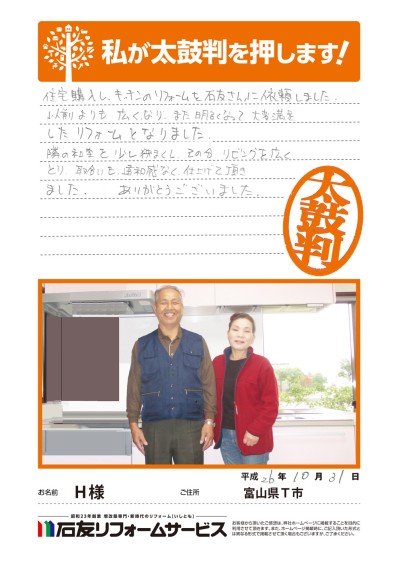 私が太鼓判を押します!
住宅購入し、キッチンのリフォームを石友さんに依頼しました。
以前よりも広くなり、また明るくなって大変満足
したリフォームとなりました。
隣の和室を少し狭くし、その分リビングを広く
とり、取合いも違和感なく仕上げて頂き
ました。ありがとうございました。
太鼓判
平成26年10月31日
お名前 H様 ご住所 富山県T市
昭和23年創業 増改築専門・新時代のリフォーム(いしとも)
石友リフォームサービス
お客様から頂いたご感想は、弊社ホームページに掲載することを目的に
利用させて頂きます。また、ホームページ掲載時に、ご記入頂いた形式と
は異なる形式で掲載させて頂く場合もございますが、ご了承ください。